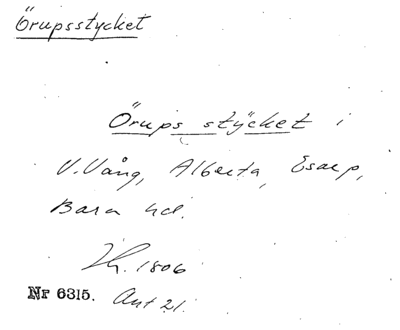 Örupsstycket
Örups stÿcket i
V. Vång, Alberta, Esarp,
Bara hd.
1806
Nr 6315. Ant 21.